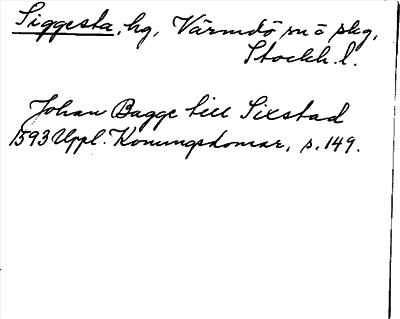 Siggesta, hg, Värmdö snö skg,
Stockh. l.
Johan Bagge till Sixstad
1593 Uppl. Konungsdomar, s. 149.